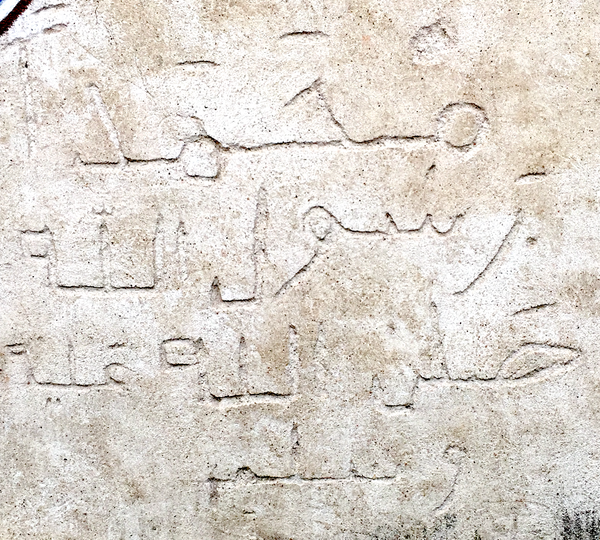 محمد
رسول الله
صلى الله عليه
وسلم